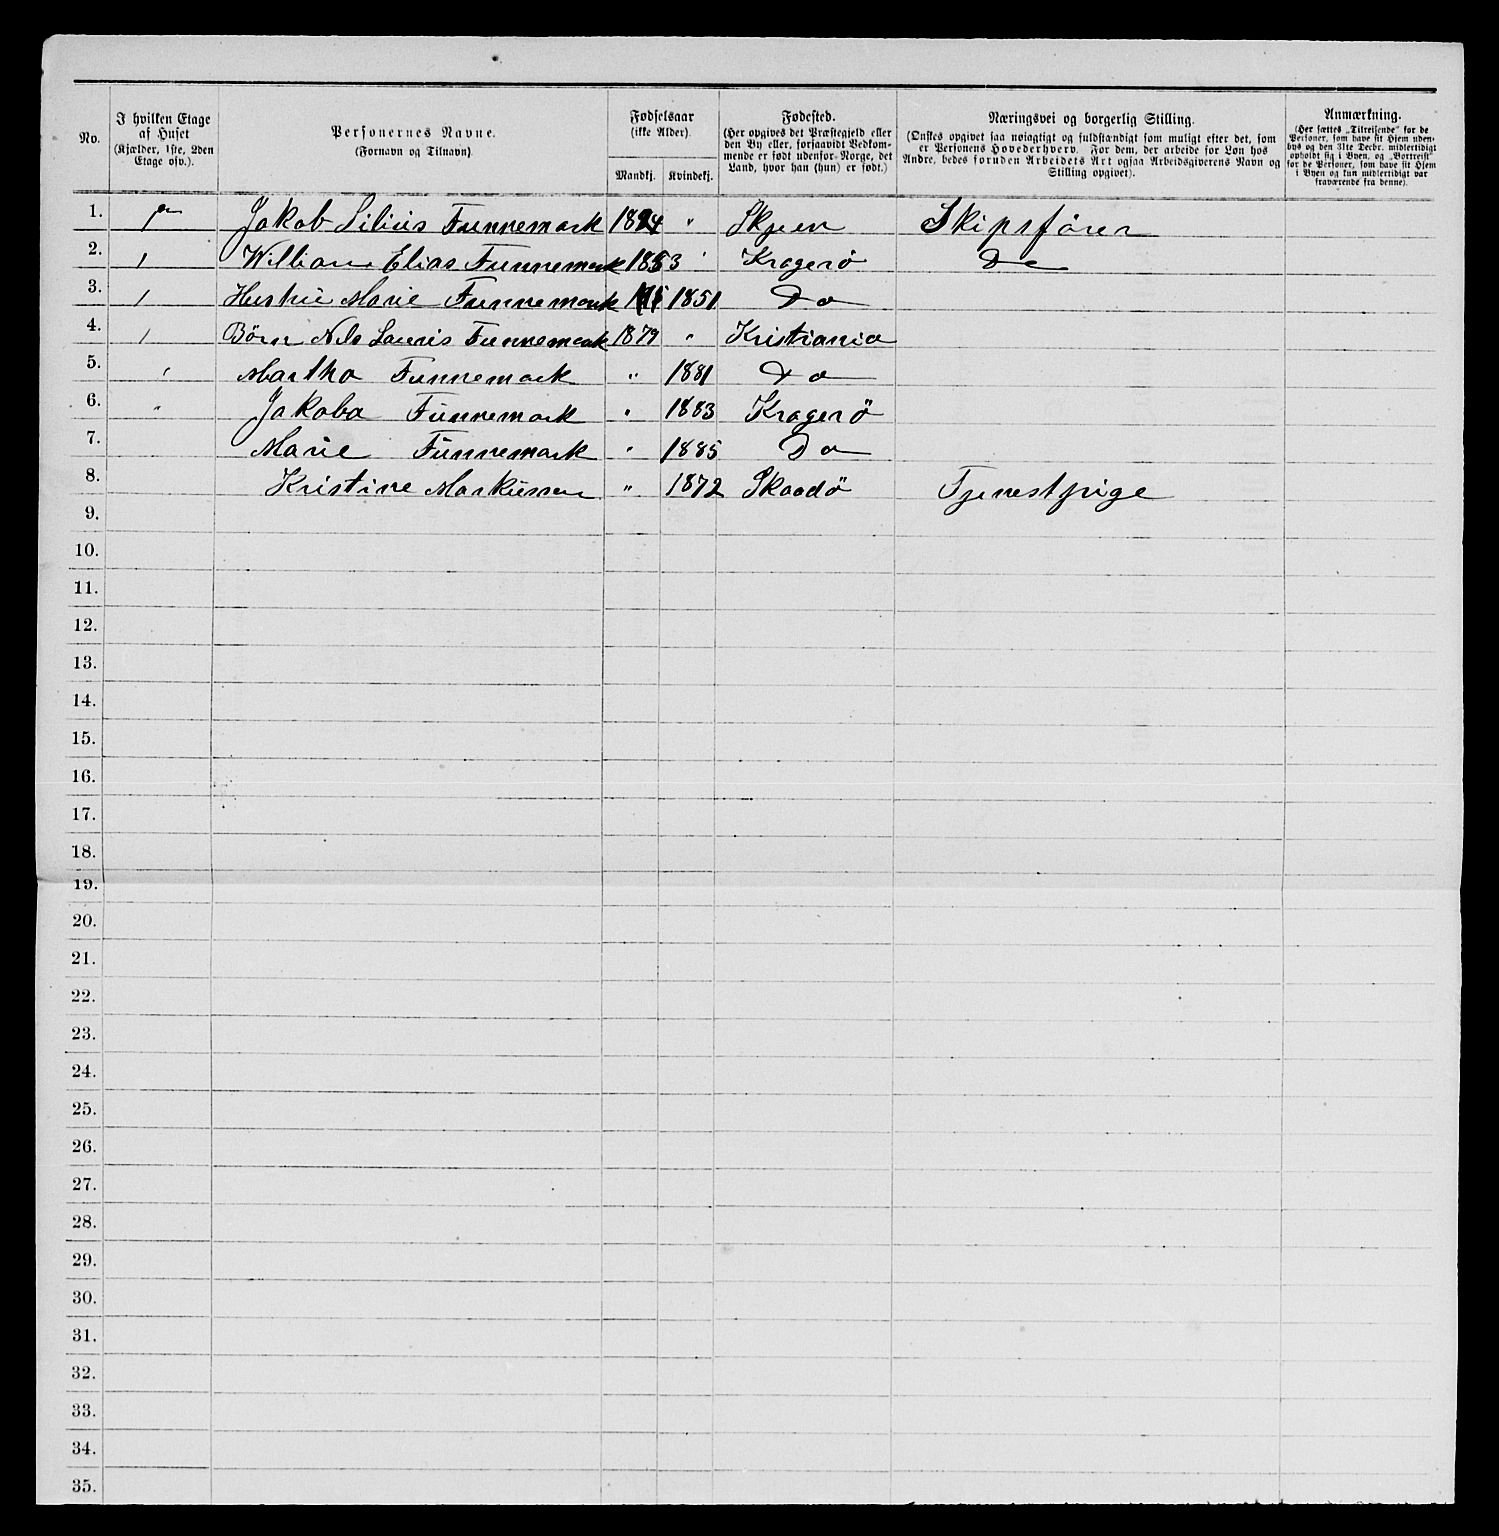 No.
I hvilken Etage af Huset (Kjælder, 1ste, 2den Etage osv.).
Personernes Navne. (Fornavn og Tilnavn).
Fødselsaar (ikke Alder).
Mandkj. Kvindekj.
Fødested. (Her opgives det Præstegjeld eller den By eller, forsaavidt Vedkommende er født udenfor Norge, det Land, hvor han (hun) er født.)
Næringsvei og borgerlig Stilling. (Ønskes opgivet saa nøiagtigt og fuldstændigt som muligt efter det, som er Personens Hovederhverv. For dem, der arbeide for Løn hos Andre, bedes foruden Arbeidets Art ogsaa Arbeidsgiverens Navn og Stilling opgivet).
Anmærkning. (Her sættes „Tilreisende" for de Personer, som have sit Hjem udenbys og den 31te Decbr. midlertidigt opholdt sig i Byen, og „Bortreist" for de Personer, som have sit Hjem i Byen og kun midlertidigt var fraværende fra denne).
1. Jakob Silius Funnemark 1824 " Skjen Skipsfører
2. William Elias Funnemark 1853 " Kragerö Do
3. Marie Funnemark 1851 Do
4. Börn Nils Lauris Funnemark 1879 " Kristiania
5. Martha Funnemark " 1881 Do
6. " Jakoba Funnemark " 1883 Kragerö
7. Marie Funnemark " 1885 Do
8. Kristine Markussen " 1872 Skaadö Tjenestpige
9.
10.
11.
12.
13.
14.
15.
16.
17.
18.
19.
20.
21.
22.
23.
24.
25.
26.
27.
28.
29.
30.
31.
32.
33.
34.
35.